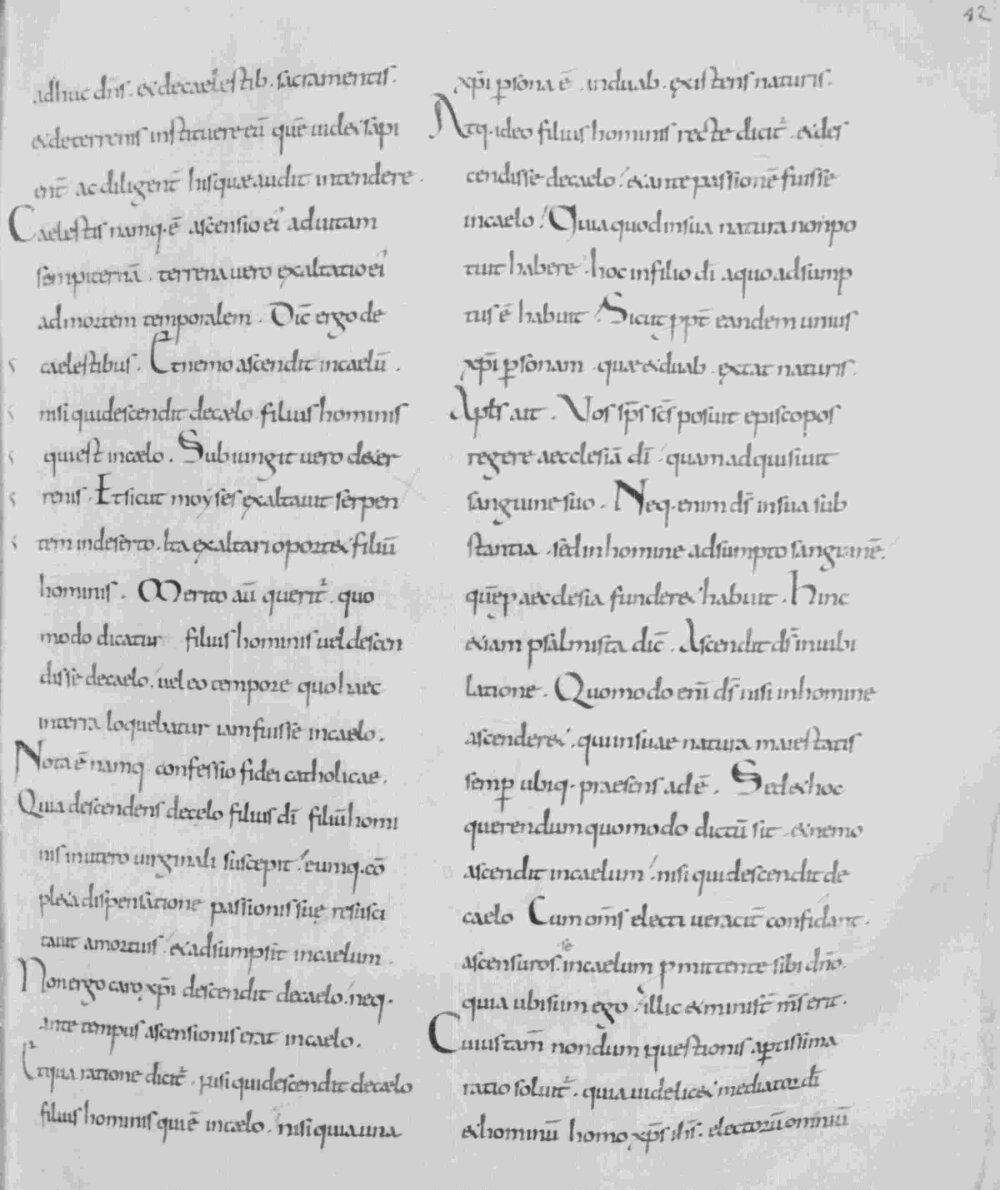 42
adhuc dn̄s. & de cael estib. sacramentis.
& de terrenis instituere eū quē uidet sapi
ent̄ ac diligent̄ his quae audit intendere.
Caelestis namq. ē ascensio ei' ad uitam
sempiternā. terrena uero exaltatio ei'
ad mortem temporalem. Dic̄ ergo de
caelestibus. Et nemo ascendit in caelū.
nisi qui descendit de caelo. filius hominis
qui est in caelo. Subiungit uero de ter
renis. Et sicut moyses exaltauit serpen
tem in deserto. Ita exaltari oport& filiū
hominis. Merito aū querit̄. quo
modo dicatur filius hominis uel descen
disse de caelo. uel eo tempore quo haec
in terra loquebatur iam fuisse in caelo.
Nota ē namq. confessio fidei catholicae.
Quia descendens de celo filius dī filiū homi
nis in utero uirginali suscepit. eumq. cō
pl&a dispensatione passionis suę resusci
tauit a mortuis. & adsumpsit in caelum.
Non ergo caro xp̄i descendit de caelo. neq.
ante tempus ascensionis erat in caelo.
Et qua ratione dicit̄. nisi qui descendit de caelo
filius hominis qui ē in caelo. nisi quia una
xp̄i p̄sona ē. in duab. existens naturis.
Atq. ideo filius hominis recte dicit̄. & des
cendisse de caelo. & ante passionē fuisse
in caelo. Quia quod in sua natura non po
tuit habere. hoc in filio dī a quo adsump
tus ē habuit. Sicut ppt̄ eandem unius
xp̄i p̄sonam. quae & duab. extat naturis.
Apl̄s ait. Vos sp̄s sc̄s posuit episcopos
regere aecclesiā dī. quam adquisiuit
sanguine suo. Neq. enim ds̄ in sua sub
stantia. sed in homine adsumpto sanguinē.
quē p aecclesia funder& habuit. Hinc
&iam psalmista dic̄. Ascendit ds̄ in iubi
latione. Quomodo enī ds̄ nisi in homine
ascender&. qui in suae natura maiestatis
semp̄ ubiq. praesens adē. Sed & hoc
querendum quomodo dictū sit. & nemo
ascendit in caelum. nisi qui descendit de
caelo Cum om̄s electi ueracit̄ confidant.
se
ascensuros. in caelum p̄mittente sibi dn̄o.
quia ubi sum ego. illic & minist̄ m̄s erit.
Cuius tam̄ nondum questionis aptissima
ratio soluit̄. quia uidelic& mediator dī
& hominū homo xp̄s ih̄s. electorū omniū